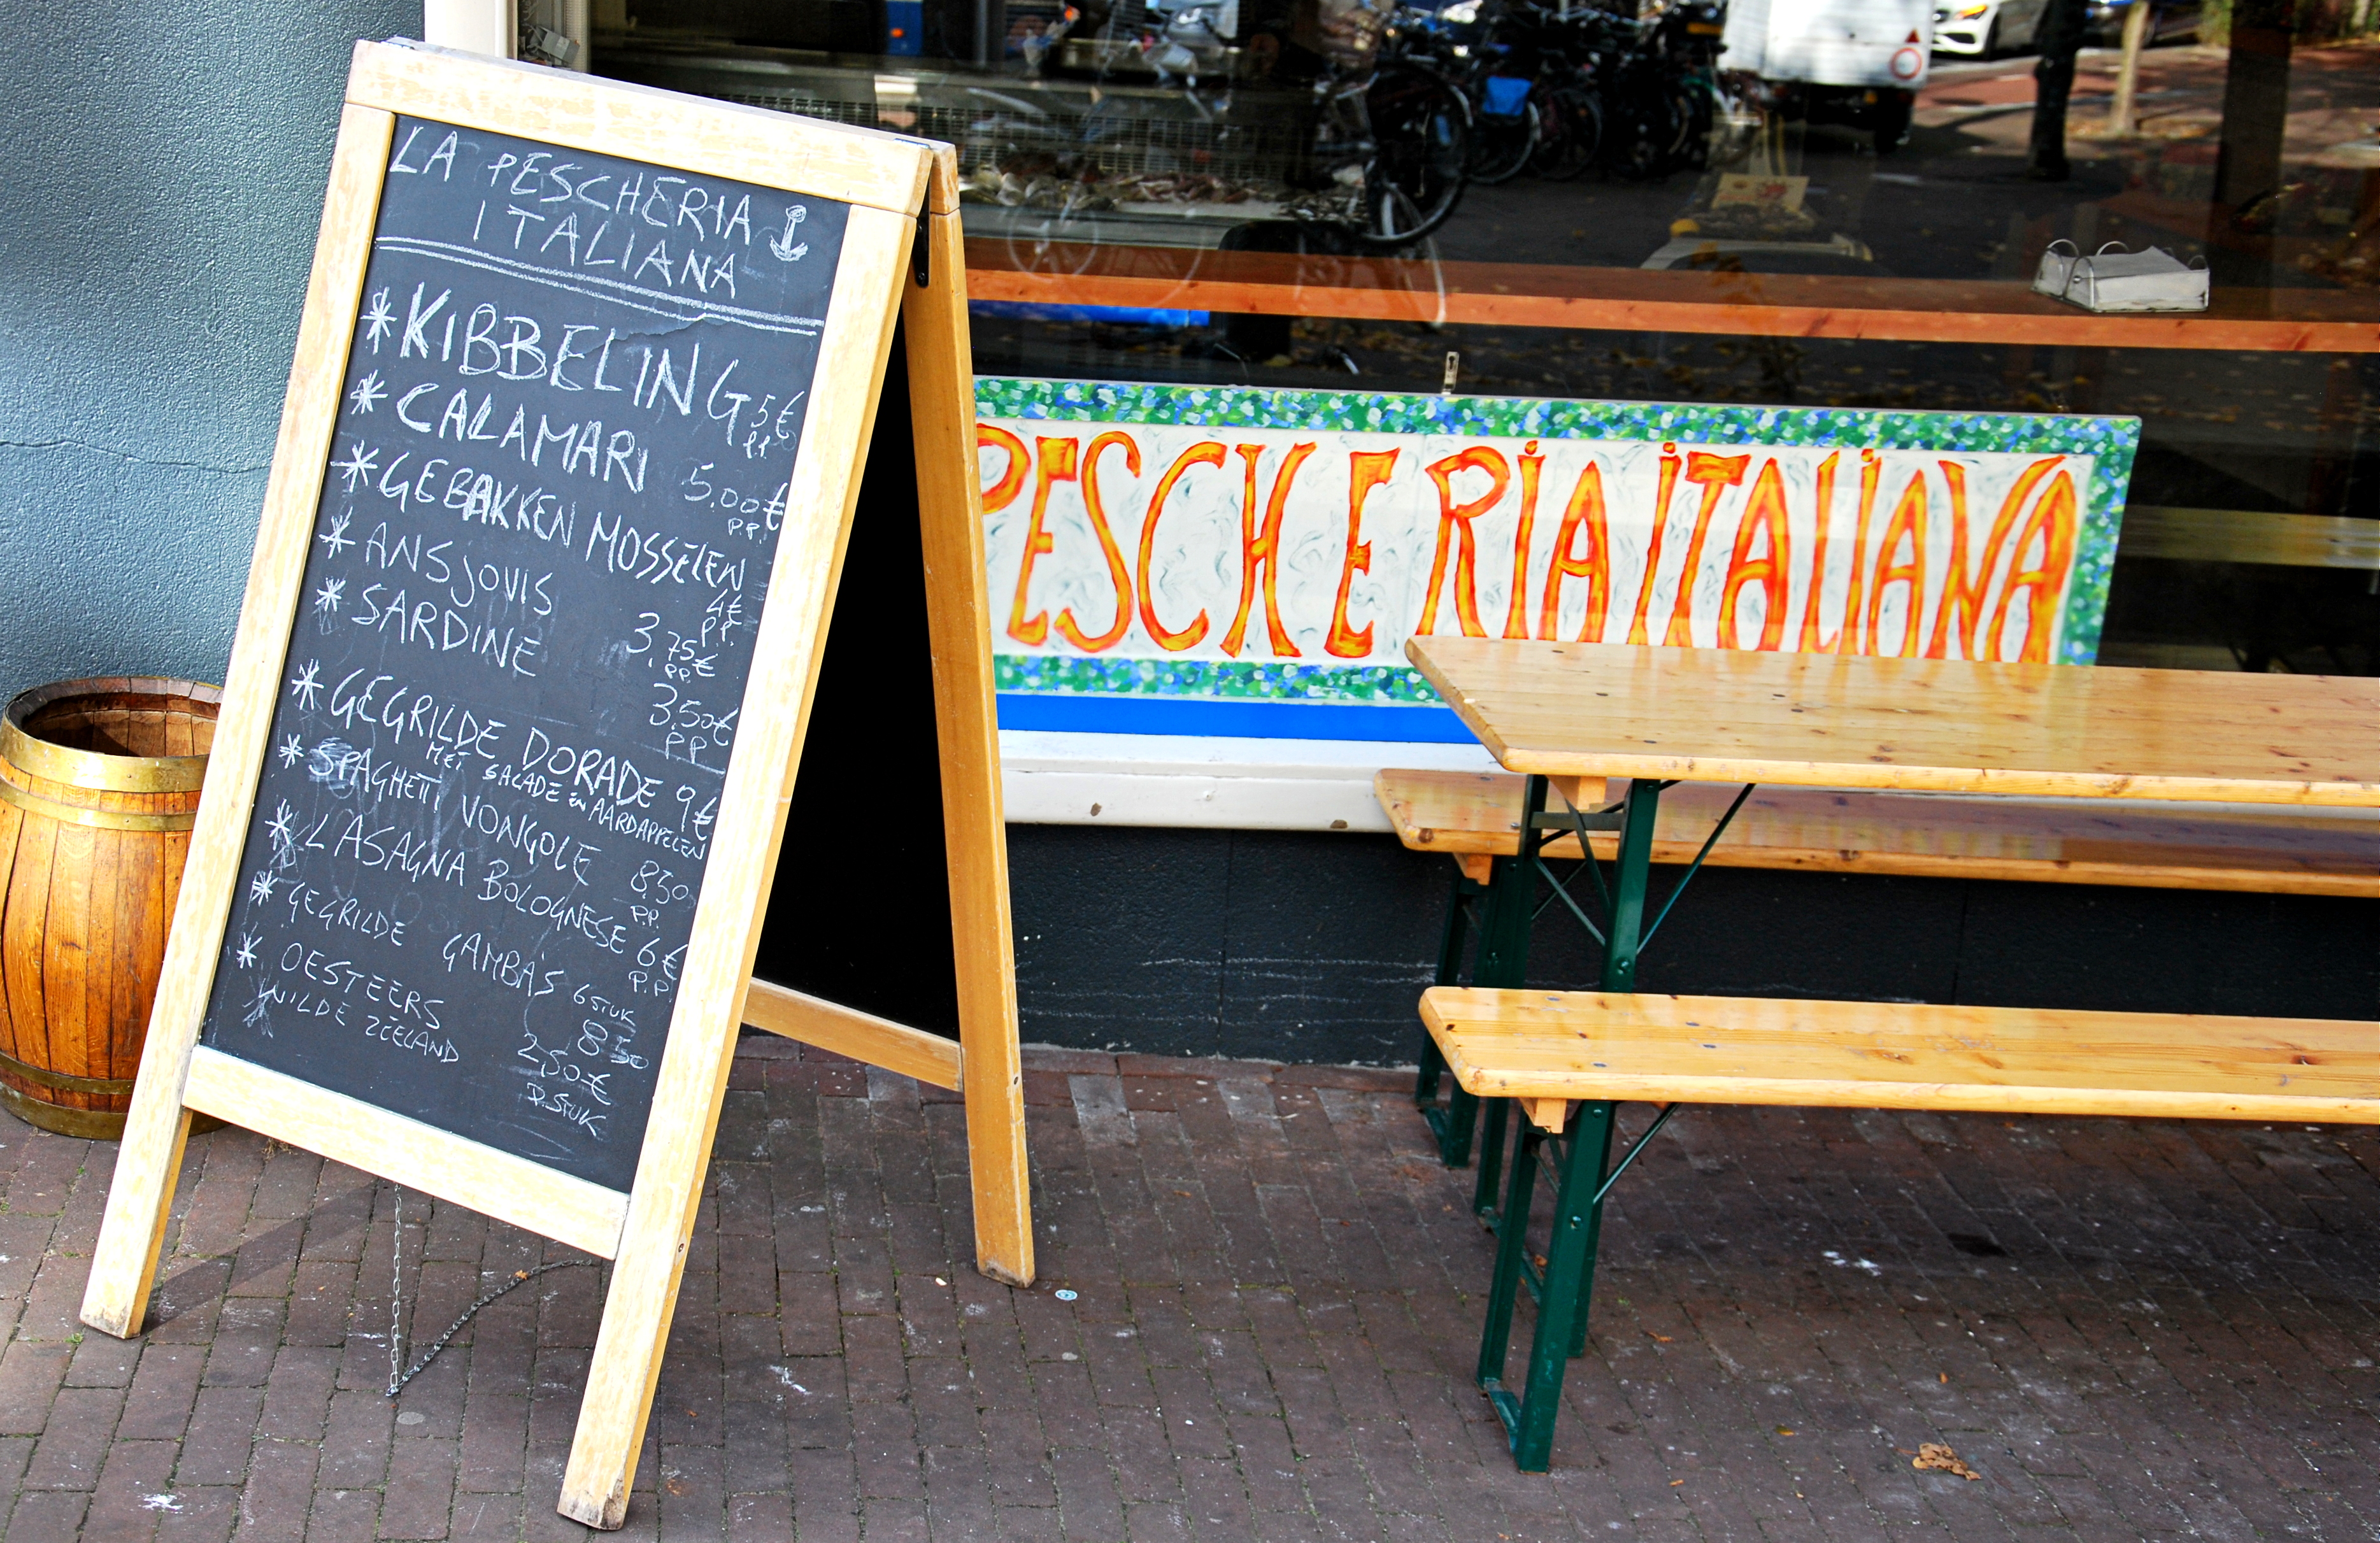 LA PESCHERIA
ITALIANA
* KIBBELING 5€
P.P.
* CALAMARI 5,00€
P.P.
* GEBAKKEN MOSSELEN
4€
P.P.
* ANSJOVIS 3,75€
PP
* SARDINE 3,50€
PP
* GEGRILDE DORADE 9€
MET SALADE EN AARDAPPELEN
* SPAGHETTI VONGOLE 8,50
P.P.
* LASAGNA BOLOGNESE 6€
P.P.
* GEGRILDE GAMBA'S 6 STUK
8,50
* OESTEERS 2,50€
WILDE ZEELAND P. STUK
PESCHERIA ITALIANA